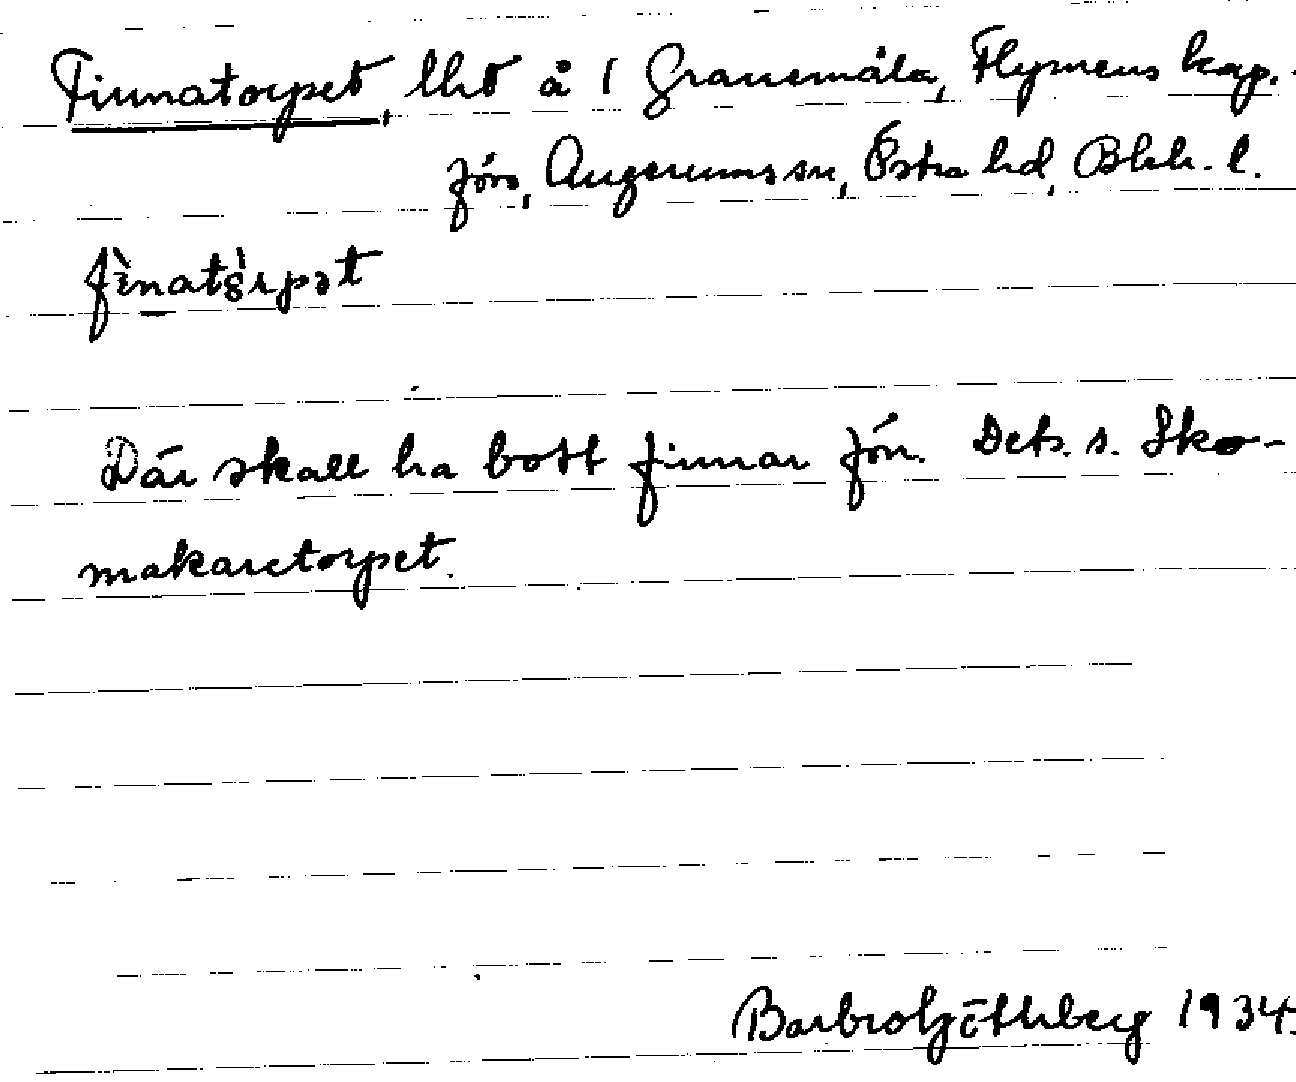 Finnatorpet, lht å 1 Granemåla, Flymens kap.-
förs, Augerums sn, Östra hd, Blek. l.
Där skall ha bott finnar förr. Dets. s. Sko-
makaretorpet.
Barbro GötHberg 1934.